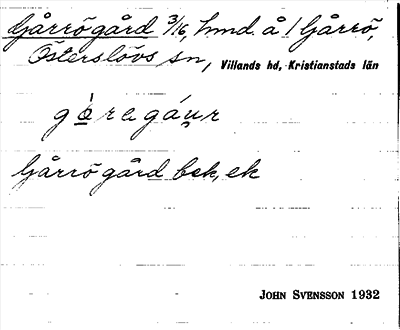 Gårrögård 3/16, hmd. å 1 Gårrö,
Österslövs sn, Villands hd, Kristianstads län
gàragáu̯r
Gårrögård bek, ek
JOHN SVENSSON 1932